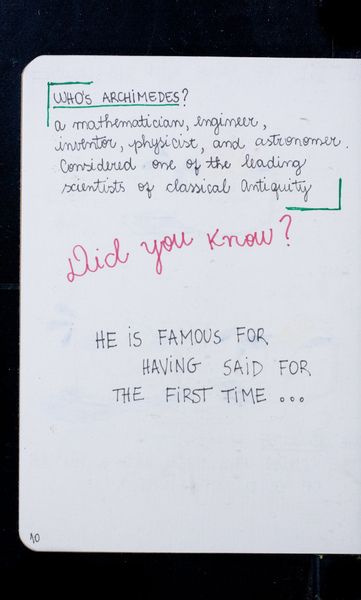 WHO'S ARCHIMEDES?
a mathematician, engineer,
inventor, physicist, and astronomer.
Considered one of the leading
scientists of classical Antiquity
Did you know?
HE iS FAMOUS FOR
HAViNG SAiD FOR
THE FiRST TiME ...
10